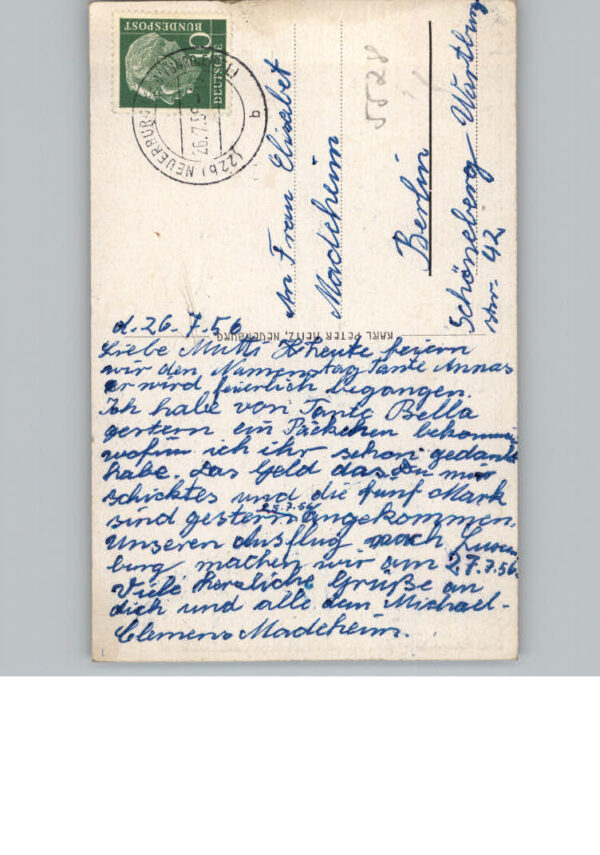 DEUTSCHE
BUNDESPOST
(22b) NEUERBURG
26.7.56
b
5528
An Frau Elisabet
Madeheim
Berlin
Schöneberg Wartburg
str. 42
KARL PETER HEITZ, NEUERBURG
d. 26.7.56
Liebe Mutti heute feiern
wir den Namenstag Tante Annas
er wird feierlich begangen.
Ich habe von Tante Bella
gestern ein Päckchen bekommen
wofür ich ihr schon gedankt
habe. Das Geld das Du mir
schicktes und die fünf Mark
25.7.56
sind gestern angekommen.
Unseren Ausflug nach Luxem
burg machen wir am 27.7.56.
Viele herzliche Grüße an
dich und alle dein Michael-
Clemens Madeheim.